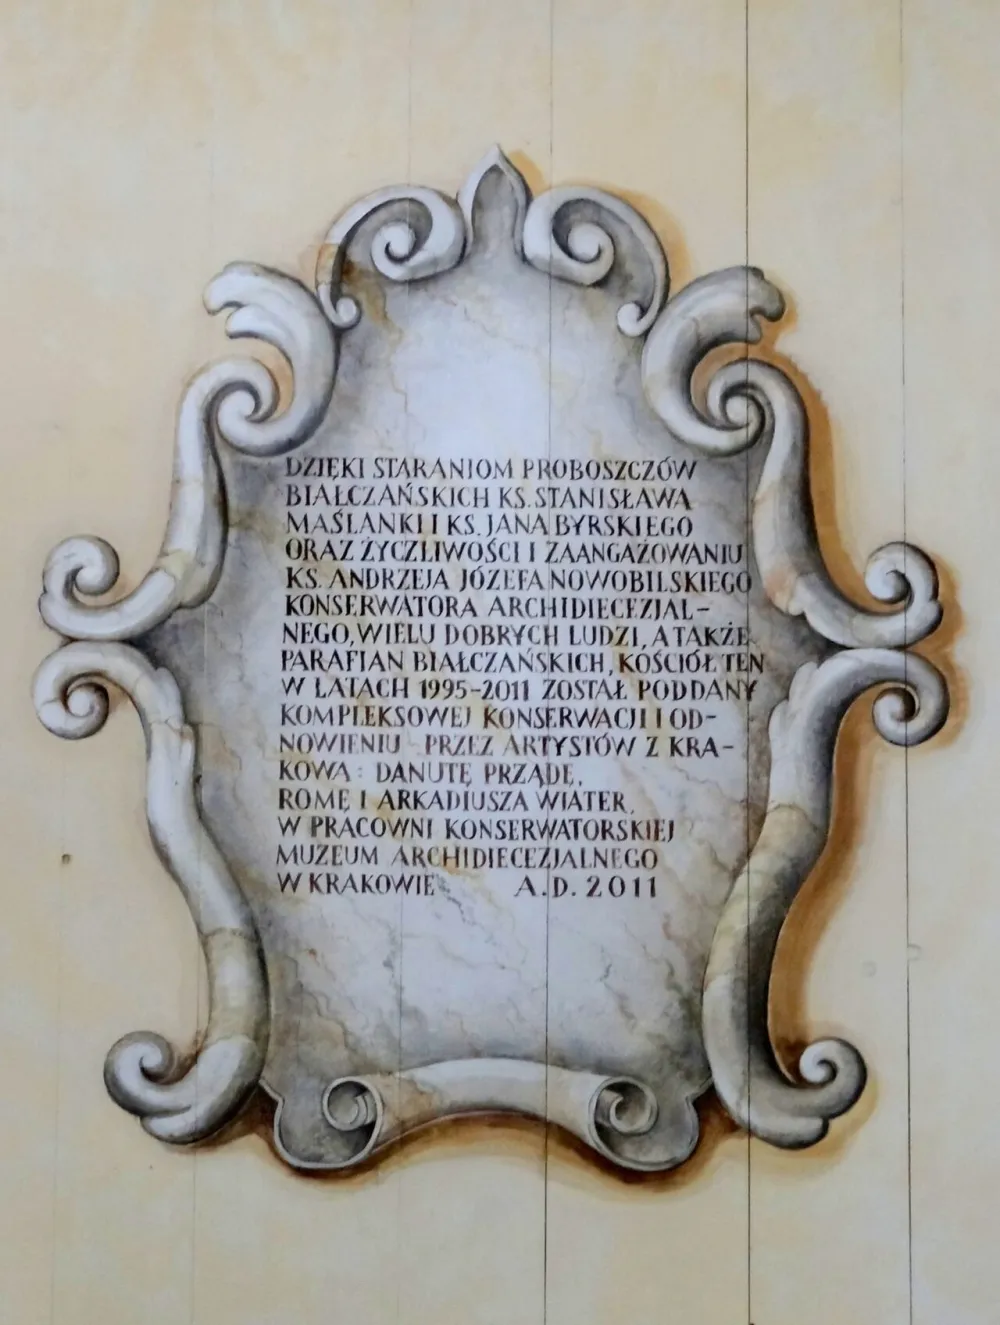 DZIĘKI STARANIOM PROBOSZCZÓW
BIAŁCZAŃSKICH KS. STANISŁAWA
MAŚLANKI I KS. JANA BYRSKIEGO
ORAZ ŻYCZLIWOŚCI I ZAANGAŻOWANIU
KS. ANDRZEJA JÓZEFA NOWOBILSKIEGO
KONSERWATORA ARCHIDIECEZJAL-
NEGO, WIELU DOBRYCH LUDZI, A TAKŻE
PARAFIAN BIAŁCZAŃSKICH, KOŚCIÓŁ TEN
W LATACH 1995-2011 ZOSTAŁ PODDANY
KOMPLEKSOWEJ KONSERWACJI I OD-
NOWIENIU PRZEZ ARTYSTÓW Z KRA-
KOWA: DANUTĘ PRZĄDĘ,
ROMĘ I ARKADIUSZA WIATER,
W PRACOWNI KONSERWATORSKIEJ
MUZEUM ARCHIDIECEZJALNEGO
W KRAKOWIE A.D. 2011